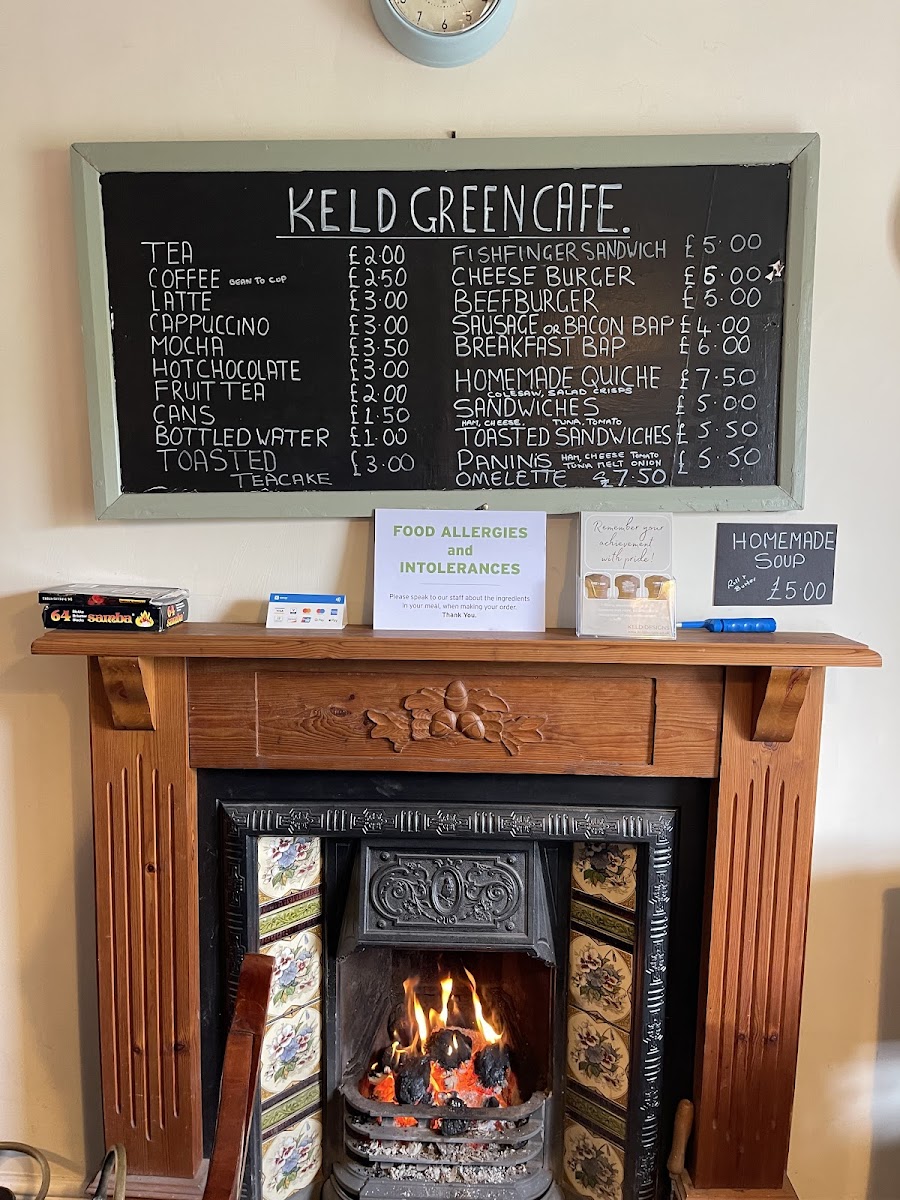 6
5
7
KELD GREEN CAFE.
TEA £2.00
COFFEE BEAN TO CUP £2.50
LATTE £3.00
CAPPUCCINO £3.00
MOCHA £3.50
HOT CHOCOLATE £3.00
FRUIT TEA £2.00
CANS £1.50
BOTTLED WATER £1.00
TOASTED £3.00
TEACAKE
FISHFINGER SANDWICH £5.00
CHEESE BURGER £6.00
BEEFBURGER £5.00
SAUSAGE OR BACON BAP £4.00
BREAKFAST BAP £6.00
HOMEMADE QUICHE £7.50
COLESAW, SALAD CRISPS
SANDWICHES £5.00
HAM, CHEESE. TUNA, TOMATO
TOASTED SANDWICHES £5.50
PANINIS HAM, CHEESE TOMATO £5.50
TUNA MELT ONION
OMELETTE £7.50
FOOD ALLERGIES
and
INTOLERANCES
Please speak to our staff about the ingredients
in your meal, when making your order.
Thank You.
Remember your
achievement
with pride!
KELD DESIGNS
HOMEMADE
SOUP
Roll &
Butter
£5.00
64 samba